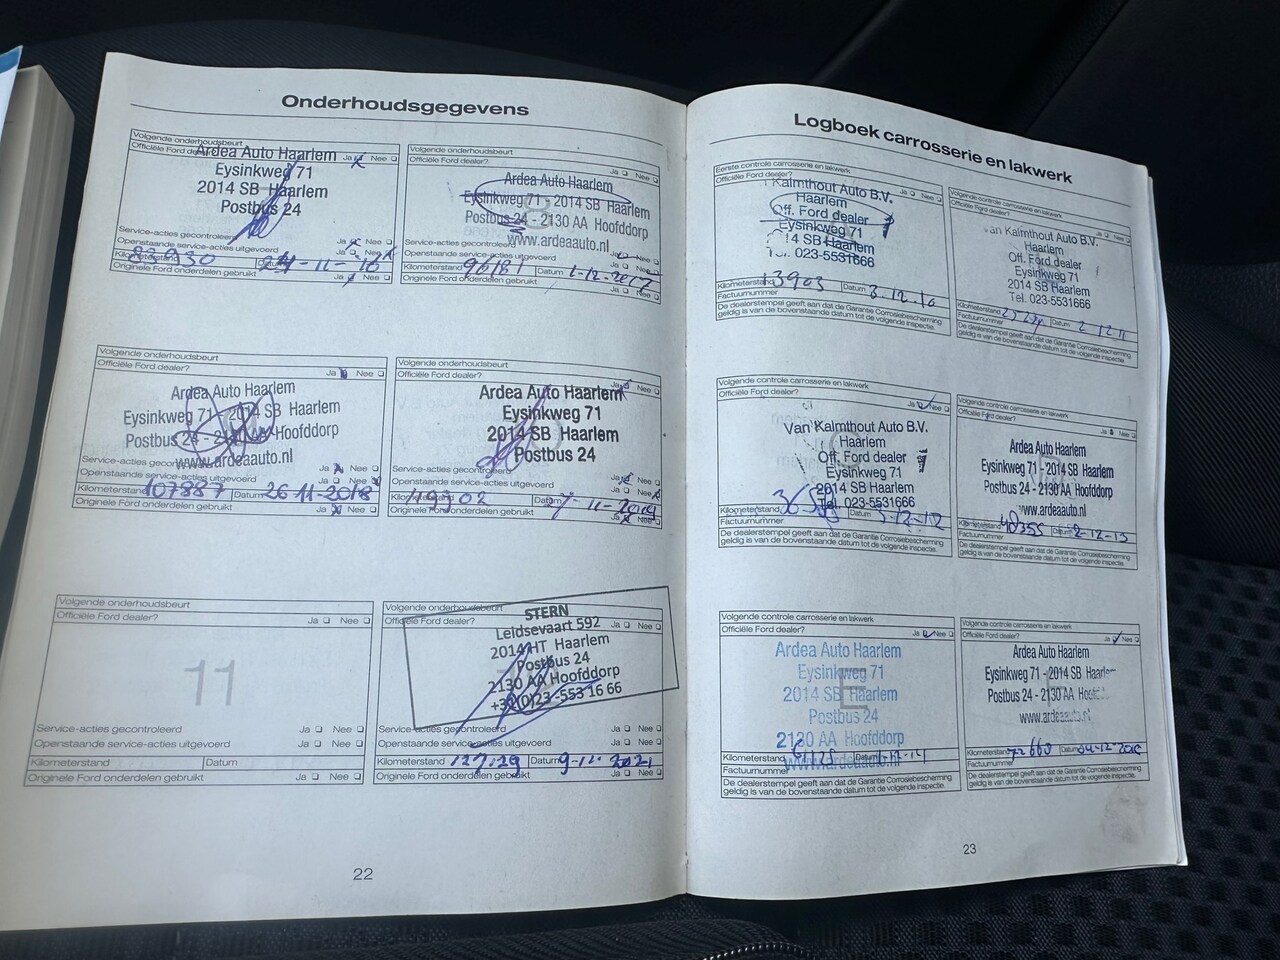 Onderhoudsgegevens
Volgende onderhoudsbeurt
Officiële Ford dealer? Ja Nee
Ardea Auto Haarlem
Eysinkweg 71
2014 SB Haarlem
Postbus 24
Service-acties gecontroleerd Ja Nee
Openstaande service-acties uitgevoerd
Kilometerstand Datum
Originele Ford onderdelen gebruikt Ja Nee
Volgende onderhoudsbeurt
Officiële Ford dealer? Ja Nee
Ardea Auto Haarlem
Eysinkweg 71 - 2014 SB Haarlem
Postbus 24 - 2130 AA Hoofddorp
www.ardeaauto.nl
Service-acties gecontroleerd
Openstaande service-acties uitgevoerd
Kilometerstand 96181 Datum 1-12-2017
Originele Ford onderdelen gebruikt Ja Nee
Volgende onderhoudsbeurt
Officiële Ford dealer? Ja Nee
Ardea Auto Haarlem
Eysinkweg 71 - 2014 SB Haarlem
Postbus 24 - 2130 AA Hoofddorp
www.ardeaauto.nl
Service-acties gecontroleerd Ja Nee
Openstaande service-acties uitgevoerd
Kilometerstand 107887 Datum 26-11-2018
Originele Ford onderdelen gebruikt Ja Nee
Volgende onderhoudsbeurt
Officiële Ford dealer? Ja Nee
Ardea Auto Haarlem
Eysinkweg 71
2014 SB Haarlem
Postbus 24
Service-acties gecontroleerd
Openstaande service-acties uitgevoerd
Kilometerstand Datum
Originele Ford onderdelen gebruikt Ja Nee
Volgende onderhoudsbeurt
Officiële Ford dealer? Ja Nee
11
Service-acties gecontroleerd Ja Nee
Openstaande service-acties uitgevoerd Ja Nee
Kilometerstand Datum
Originele Ford onderdelen gebruikt Ja Nee
Volgende onderhoudsbeurt
Officiële Ford dealer? Ja Nee
STERN
Leidsevaart 592
2014 HT Haarlem
Postbus 24
2130 AA Hoofddorp
+31(0)23-553 16 66
Service-acties gecontroleerd Ja Nee
Openstaande service-acties uitgevoerd Ja Nee
Kilometerstand Datum 9-12-2021
Originele Ford onderdelen gebruikt Ja Nee
22
Logboek carrosserie en lakwerk
Eerste controle carrosserie en lakwerk
Officiële Ford dealer? Ja Nee
Kalmthout Auto B.V.
Haarlem
Off. Ford dealer
Eysinkweg 71
14 SB Haarlem
Tel. 023-5531666
Kilometerstand 13903 Datum 3-12-10
Factuurnummer
De dealerstempel geeft aan dat de Garantie Corrosiebescherming
geldig is van de bovenstaande datum tot de volgende inspectie.
Volgende controle carrosserie en lakwerk
Officiële Ford dealer? Ja Nee
van Kalmthout Auto B.V.
Haarlem
Off. Ford dealer
Eysinkweg 71
2014 SB Haarlem
Tel. 023-5531666
Kilometerstand Datum 2-12-11
Factuurnummer
De dealerstempel geeft aan dat de Garantie Corrosiebescherming
geldig is van de bovenstaande datum tot de volgende inspectie.
Volgende controle carrosserie en lakwerk
Officiële Ford dealer? Ja Nee
Van Kalmthout Auto B.V.
Haarlem
Off. Ford dealer
Eysinkweg 71
2014 SB Haarlem
Tel. 023-5531666
Kilometerstand Datum
Factuurnummer
De dealerstempel geeft aan dat de Garantie Corrosiebescherming
geldig is van de bovenstaande datum tot de volgende inspectie.
Volgende controle carrosserie en lakwerk
Officiële Ford dealer? Ja Nee
Ardea Auto Haarlem
Eysinkweg 71 - 2014 SB Haarlem
Postbus 24 - 2130 AA Hoofddorp
www.ardeaauto.nl
Kilometerstand Datum 2-12-13
Factuurnummer
De dealerstempel geeft aan dat de Garantie Corrosiebescherming
geldig is van de bovenstaande datum tot de volgende inspectie.
Volgende controle carrosserie en lakwerk
Officiële Ford dealer? Ja Nee
Ardea Auto Haarlem
Eysinkweg 71
2014 SB Haarlem
Postbus 24
2130 AA Hoofddorp
www.ardeaauto.nl
Kilometerstand Datum
Factuurnummer
De dealerstempel geeft aan dat de Garantie Corrosiebescherming
geldig is van de bovenstaande datum tot de volgende inspectie.
Volgende controle carrosserie en lakwerk
Officiële Ford dealer? Ja Nee
Ardea Auto Haarlem
Eysinkweg 71 - 2014 SB Haarlem
Postbus 24 - 2130 AA
www.ardeaauto.nl
Kilometerstand 72660 Datum
Factuurnummer
De dealerstempel geeft aan dat de Garantie Corrosiebescherming
geldig is van de bovenstaande datum tot de volgende inspectie.
23